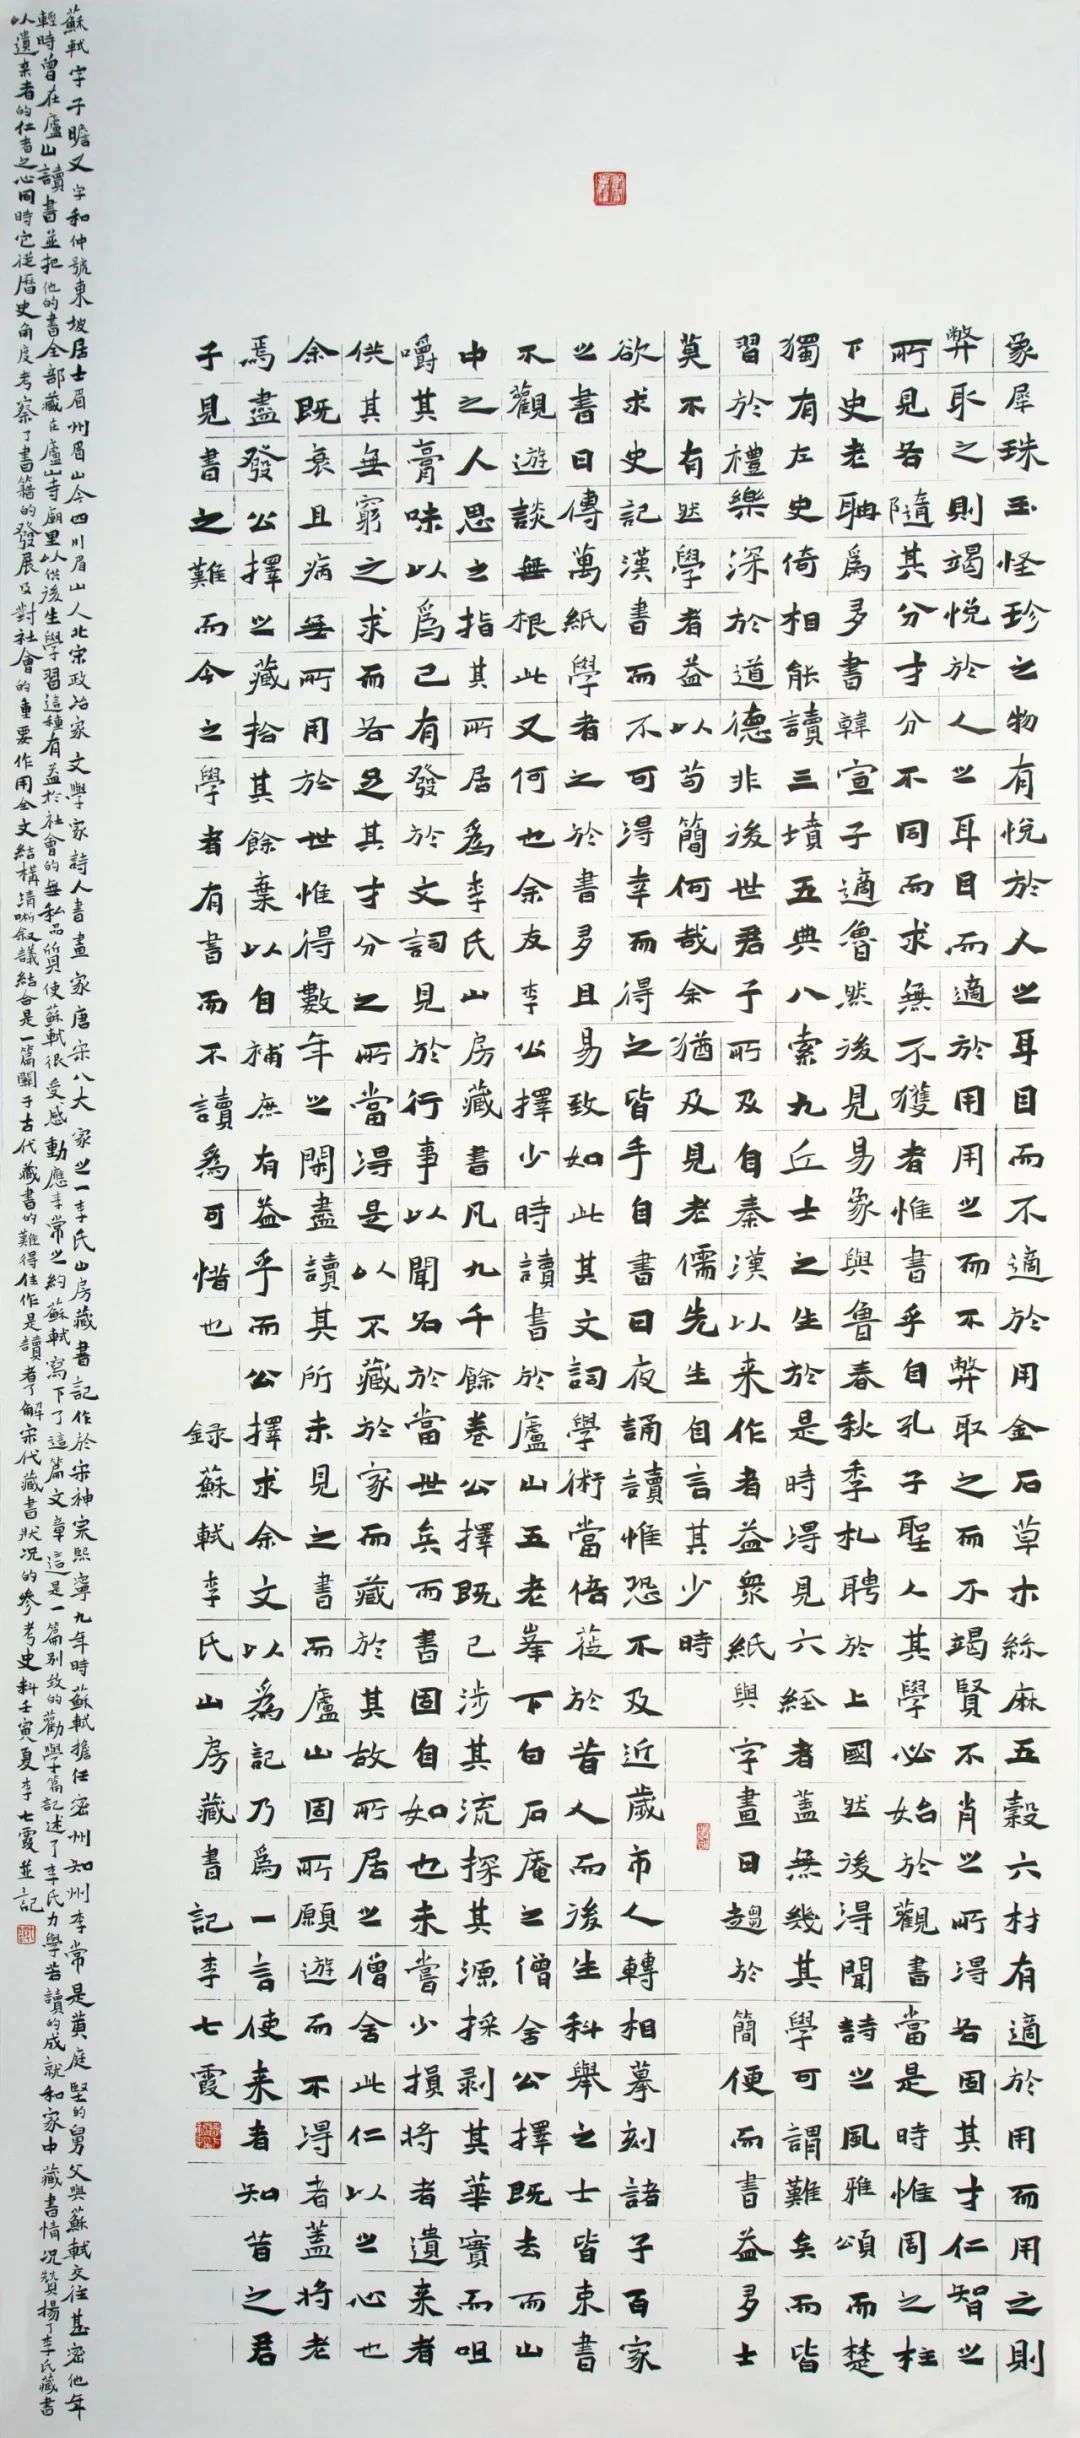 象犀珠玉怪珍之物有悅於人之耳目而不適於用金石草木絲麻五穀六材有適於用而用之則
弊取之則竭悅於人之耳目而適於用用之而不弊取之而不竭賢不肖之所得各固其才仁智之
所見各隨其分才分不同而求無不獲者惟書乎自孔子聖人其學必始於觀書當是時惟周之柱
下史老聃為多書韓宣子適魯然後見易象與魯春秋季札聘於上國然後得聞詩之風雅頌而楚
獨有左史倚相能讀三墳五典八索九丘士之生於是時得見六經者蓋無幾其學可謂難矣而皆
習於禮樂深於道德非後世君子所及自秦漢以來作者益眾紙與字畫日趨於簡便而書益多士
莫不有然學者益以苟簡何哉余猶及見老儒先生自言其少時
欲求史記漢書而不可得幸而得之皆手自書日夜誦讀惟恐不及近歲市人轉相摹刻諸子百家
之書日傳萬紙學者之於書多且易致如此其文詞學術當倍蓰於昔人而後生科舉之士皆束書
不觀遊談無根此又何也余友李公擇少時讀書於廬山五老峯下白石庵之僧舍公擇既去而山
中之人思之指其所居為李氏山房藏書凡九千餘卷公擇既已涉其流探其源採剝其華實而咀
嚼其膏味以為己有發於文詞見於行事以聞名於當世矣而書固自如也未嘗少損將者遺來者
供其無窮之求而各足其才分之所當得是以不藏於家而藏於其故所居之僧舍此仁以之心也
余既衰且病無所用於世惟得數年之閑盡讀其所未見之書而廬山固所願遊而不得者蓋將老
焉盡發公擇之藏拾其餘棄以自補庶有益乎而公擇求余文以為記乃為一言使來者知昔之君
子見書之難而今之學者有書而不讀為可惜也 錄蘇軾李氏山房藏書記李七霞
蘇軾字子瞻又字和仲號東坡居士眉州眉山今四川眉山人北宋政治家文學家詩人書畫家唐宋八大家之一李氏山房藏書記作於宋神宗熙寧九年時蘇軾擔任密州知州李常是黃庭堅的舅父與蘇軾交往甚密他年
輕時曾在廬山讀書並把他的書全部藏在廬山寺廟里以供後生學習這種有益於社會的無私品質使蘇軾很受感動應李常之約蘇軾寫下了這篇文章這是一篇別致的勸學篇記述了李氏力學苦讀的成就和家中藏書情況贊揚了李氏藏書
以遺來者的仁者之心同時它從歷史角度考察了書籍的發展及對社會的重要作用全文結構清晰敘議結合是一篇關于古代藏書的難得佳作是讀者了解宋代藏書狀況的參考史料壬寅夏李七霞並記